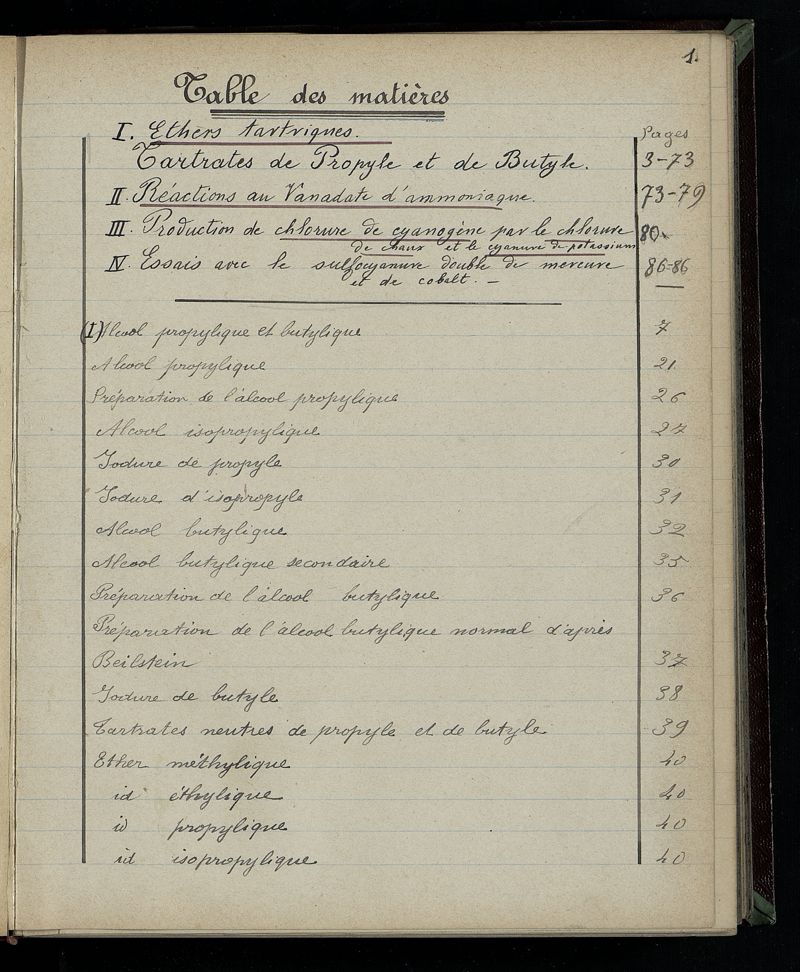 1.
Table des matières
Pages
I. Ethers tartriques.
Tartrates de Propyle et de Butyle. 3-73
II. Réactions au Vanadate d'ammoniaque. 73-79
III. Production de chlorure de cyanogène par le chlorure 80.
de chaux et le cyanure de potassium
IV. Essais avec le sulfocyanure double de mercure 86-86
et de cobalt. —
(I) Alcool propylique et butylique 7
Alcool propylique 21.
Préparation de l'álcool propylique 26
Alcool isopropylique 27
Iodure de propyle 30
Iodure d'isopropyle 31
Alcool butylique 32
Alcool butylique secondaire 35
Préparation de l'álcool butylique 36
Préparation de l'álcool butylique normal d'après
Beilstein 37
Iodure de butyle 38
Tartrates neutres de propyle et de butyle 39
Ether méthylique 40
id éthylique 40
id propylique 40
id isopropylique 40